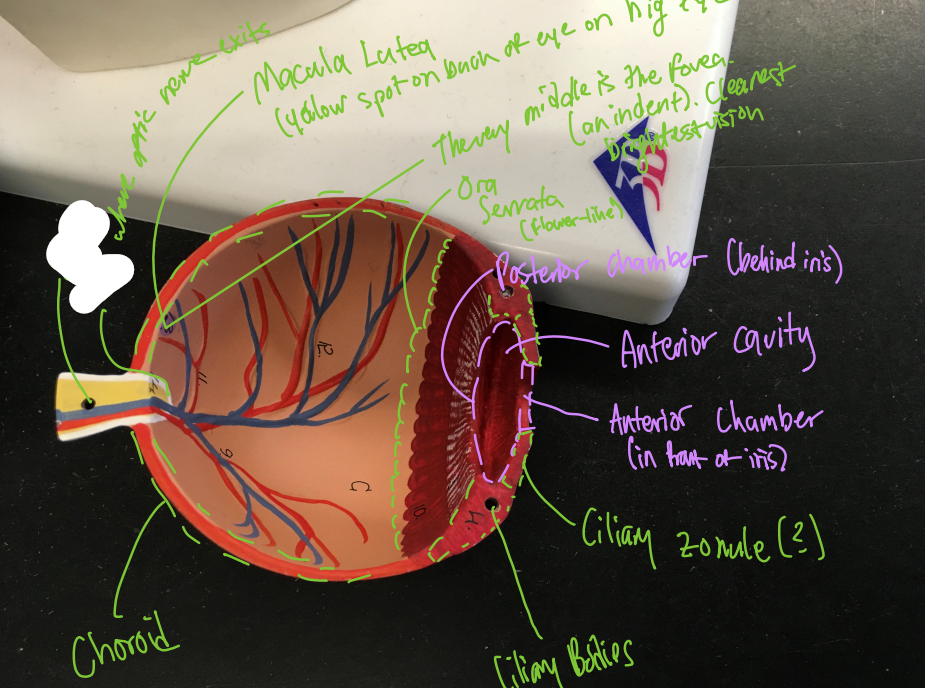 where optic nerve exits
Macula Lutea
(yellow spot on back of eye on big eye
The very middle is the fovea.
(an indent). Clearest
brightest vision
Ora
Serrata
(flower-like)
3B
Posterior chamber (behind iris)
Anterior cavity
Anterior Chamber
(in front of iris)
Ciliary zonule (?)
Choroid
Ciliary Bodies
12.
11.
9
G
10.
H.